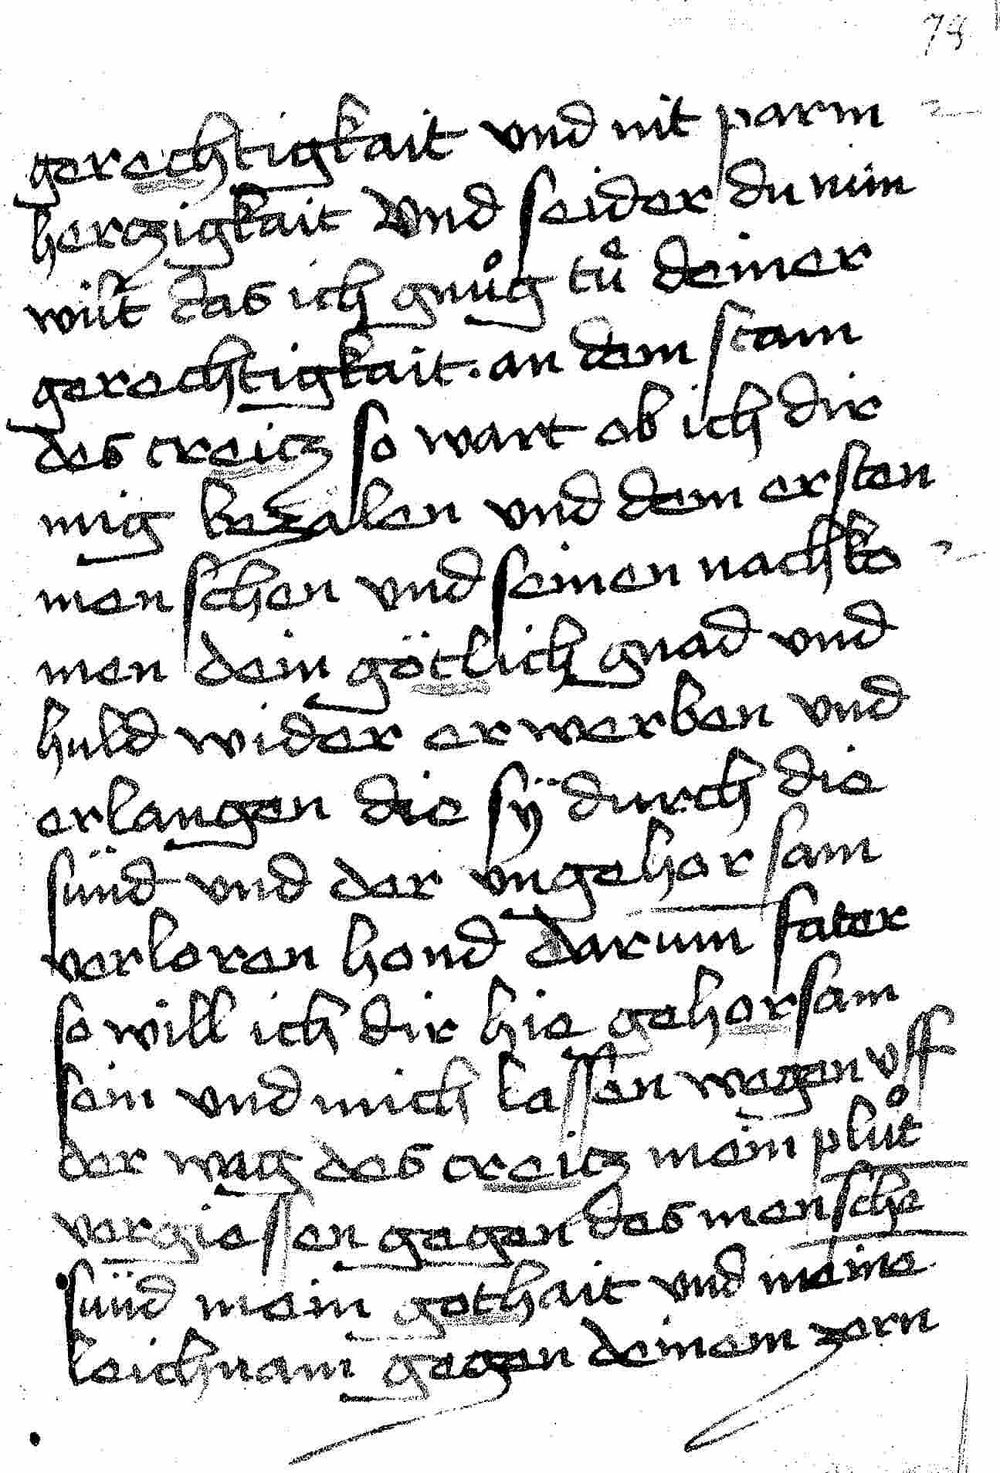 79
gerechtigkait vnd nit parm=
herczigkait Vnd seider du nun
wilt das ich gnůg tuͤ deiner
gerechtigkait. an dem stam
des creicz so wart ob ich dir
mig bezalen vnd dem ersten
menschen vnd seinen nachko=
men dein götlich gnad vnd
huld wider erwerben vnd
erlangen die sÿ durch die
sünd vnd der vngehorsam
verloren hond darum fater
so will ich dir hie gehorsam
sein vnd mich lassen wegen vff
der wag des creicz mein plůt
vergiessen gegen des mensche
sünd mein gothait vnd meine
leichnam gegen deinem zorn